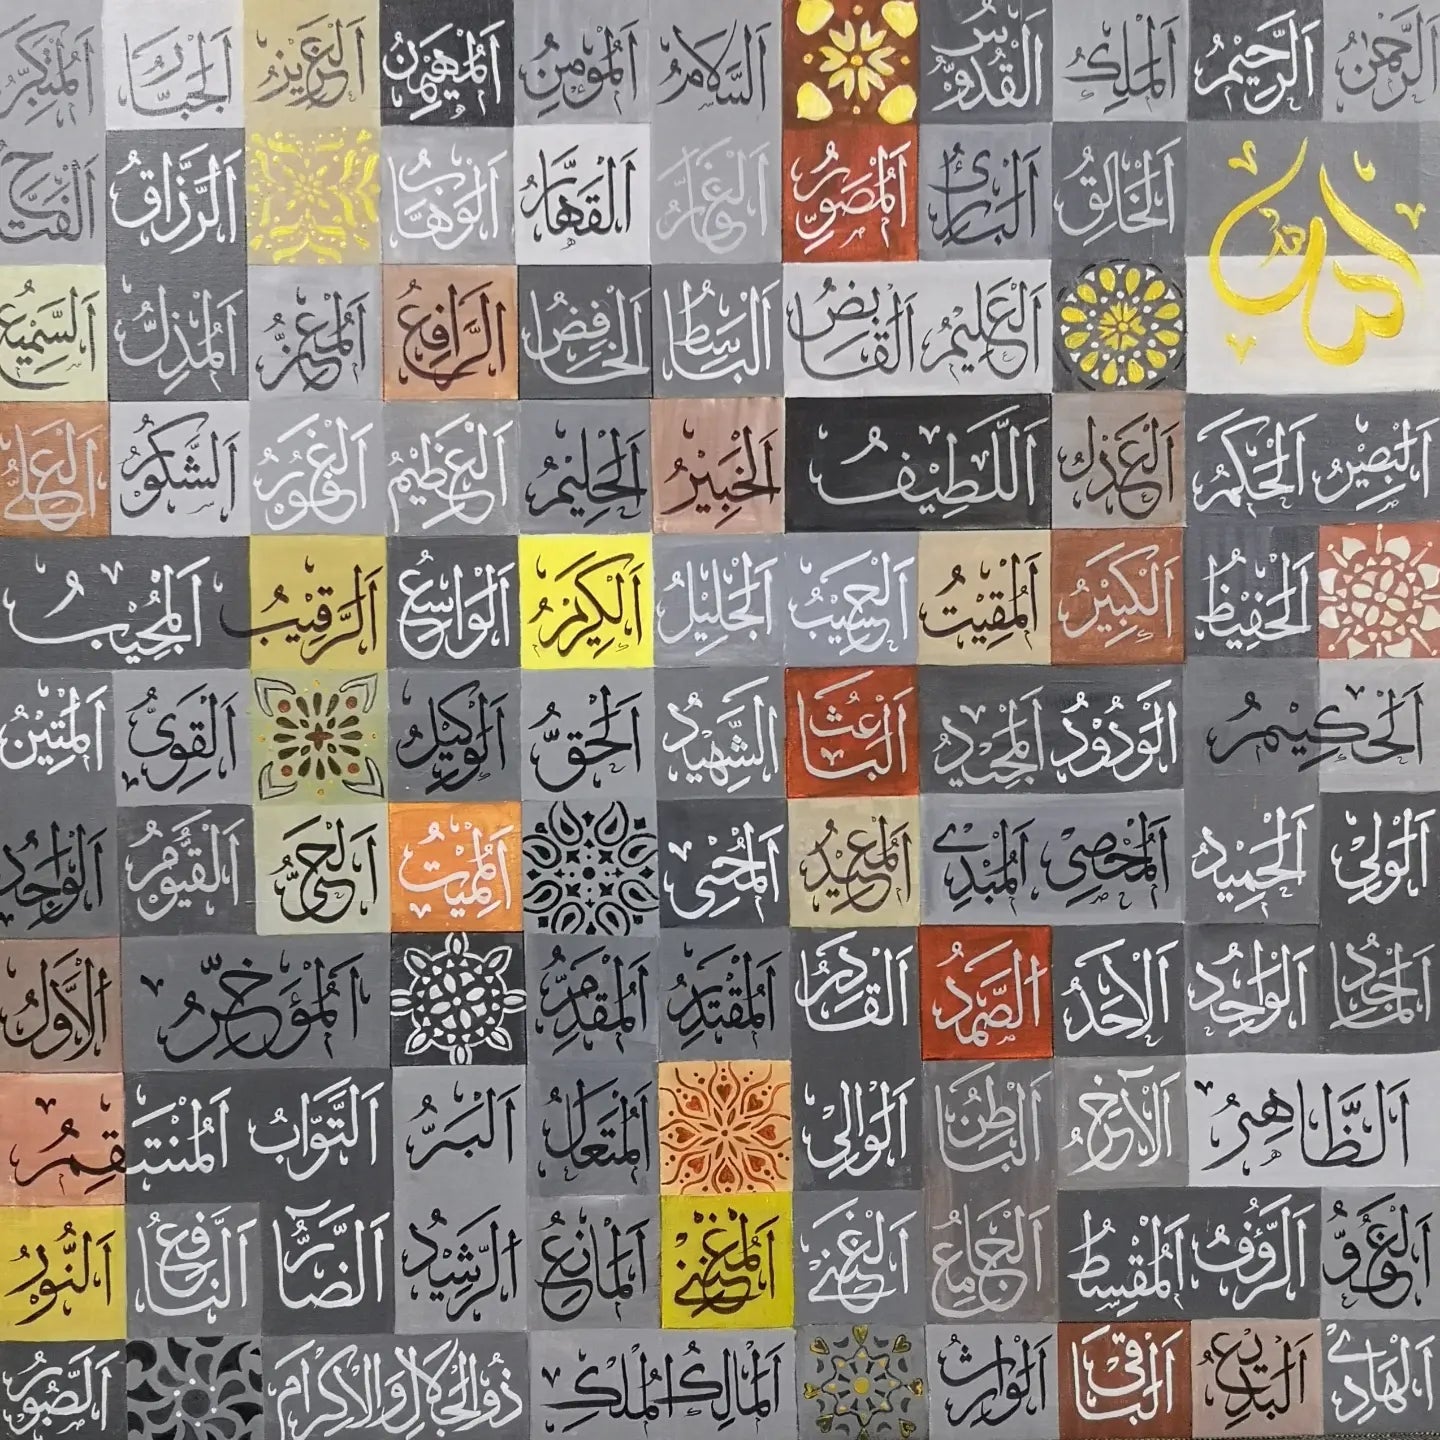 الرَّحْمٰنُ الرَّحِيْمُ الْمَلِكُ الْقُدُّوْسُ السَّلَامُ الْمُؤْمِنُ الْمُهَيْمِنُ الْعَزِيْزُ الْجَبَّارُ الْمُتَكَبِّرُ
الْخَالِقُ الْبَارِئُ الْمُصَوِّرُ الْغَفَّارُ الْقَهَّارُ الْوَهَّابُ الرَّزَّاقُ الْفَتَّاحُ
الْعَلِيْمُ الْقَابِضُ الْبَاسِطُ الْخَافِضُ الرَّافِعُ الْمُعِزُّ الْمُذِلُّ السَّمِيْعُ
الْبَصِيْرُ الْحَكَمُ الْعَدْلُ اللَّطِيْفُ الْخَبِيْرُ الْحَلِيْمُ الْعَظِيْمُ الْغَفُوْرُ الشَّكُوْرُ الْعَلِيُّ
الْحَفِيْظُ الْكَبِيْرُ الْمُقِيْتُ الْحَسِيْبُ الْجَلِيْلُ الْكَرِيْمُ الْوَاسِعُ الرَّقِيْبُ الْمُجِيْبُ
الْحَكِيْمُ الْوَدُوْدُ الْمَجِيْدُ الْبَاعِثُ الشَّهِيْدُ الْحَقُّ الْوَكِيْلُ الْقَوِيُّ الْمَتِيْنُ
الْوَلِيُّ الْحَمِيْدُ الْمُحْصِي الْمُبْدِئُ الْمُعِيْدُ الْمُحْيِي الْمُمِيْتُ الْحَيُّ الْقَيُّوْمُ الْوَاجِدُ
الْمَاجِدُ الْوَاحِدُ الْأَحَدُ الصَّمَدُ الْقَادِرُ الْمُقْتَدِرُ الْمُقَدِّمُ الْمُؤَخِّرُ الْأَوَّلُ
الظَّاهِرُ الْآخِرُ الْبَاطِنُ الْوَالِي الْمُتَعَالُ الْبَرُّ التَّوَّابُ الْمُنْتَقِمُ
الْعَفُوُّ الرَّؤُفُ الْمُقْسِطُ الْجَامِعُ الْغَنِيُّ الْمُغْنِي الْمَانِعُ الرَّشِيْدُ الضَّآرُّ النَّافِعُ النُّوْرُ
الْهَادِي الْبَدِيْعُ الْبَاقِي الْوَارِثُ الْمَالِكُ الْمُلْكِ ذُو الْجَلَالِ وَالْإِكْرَامِ الصَّبُوْرُ